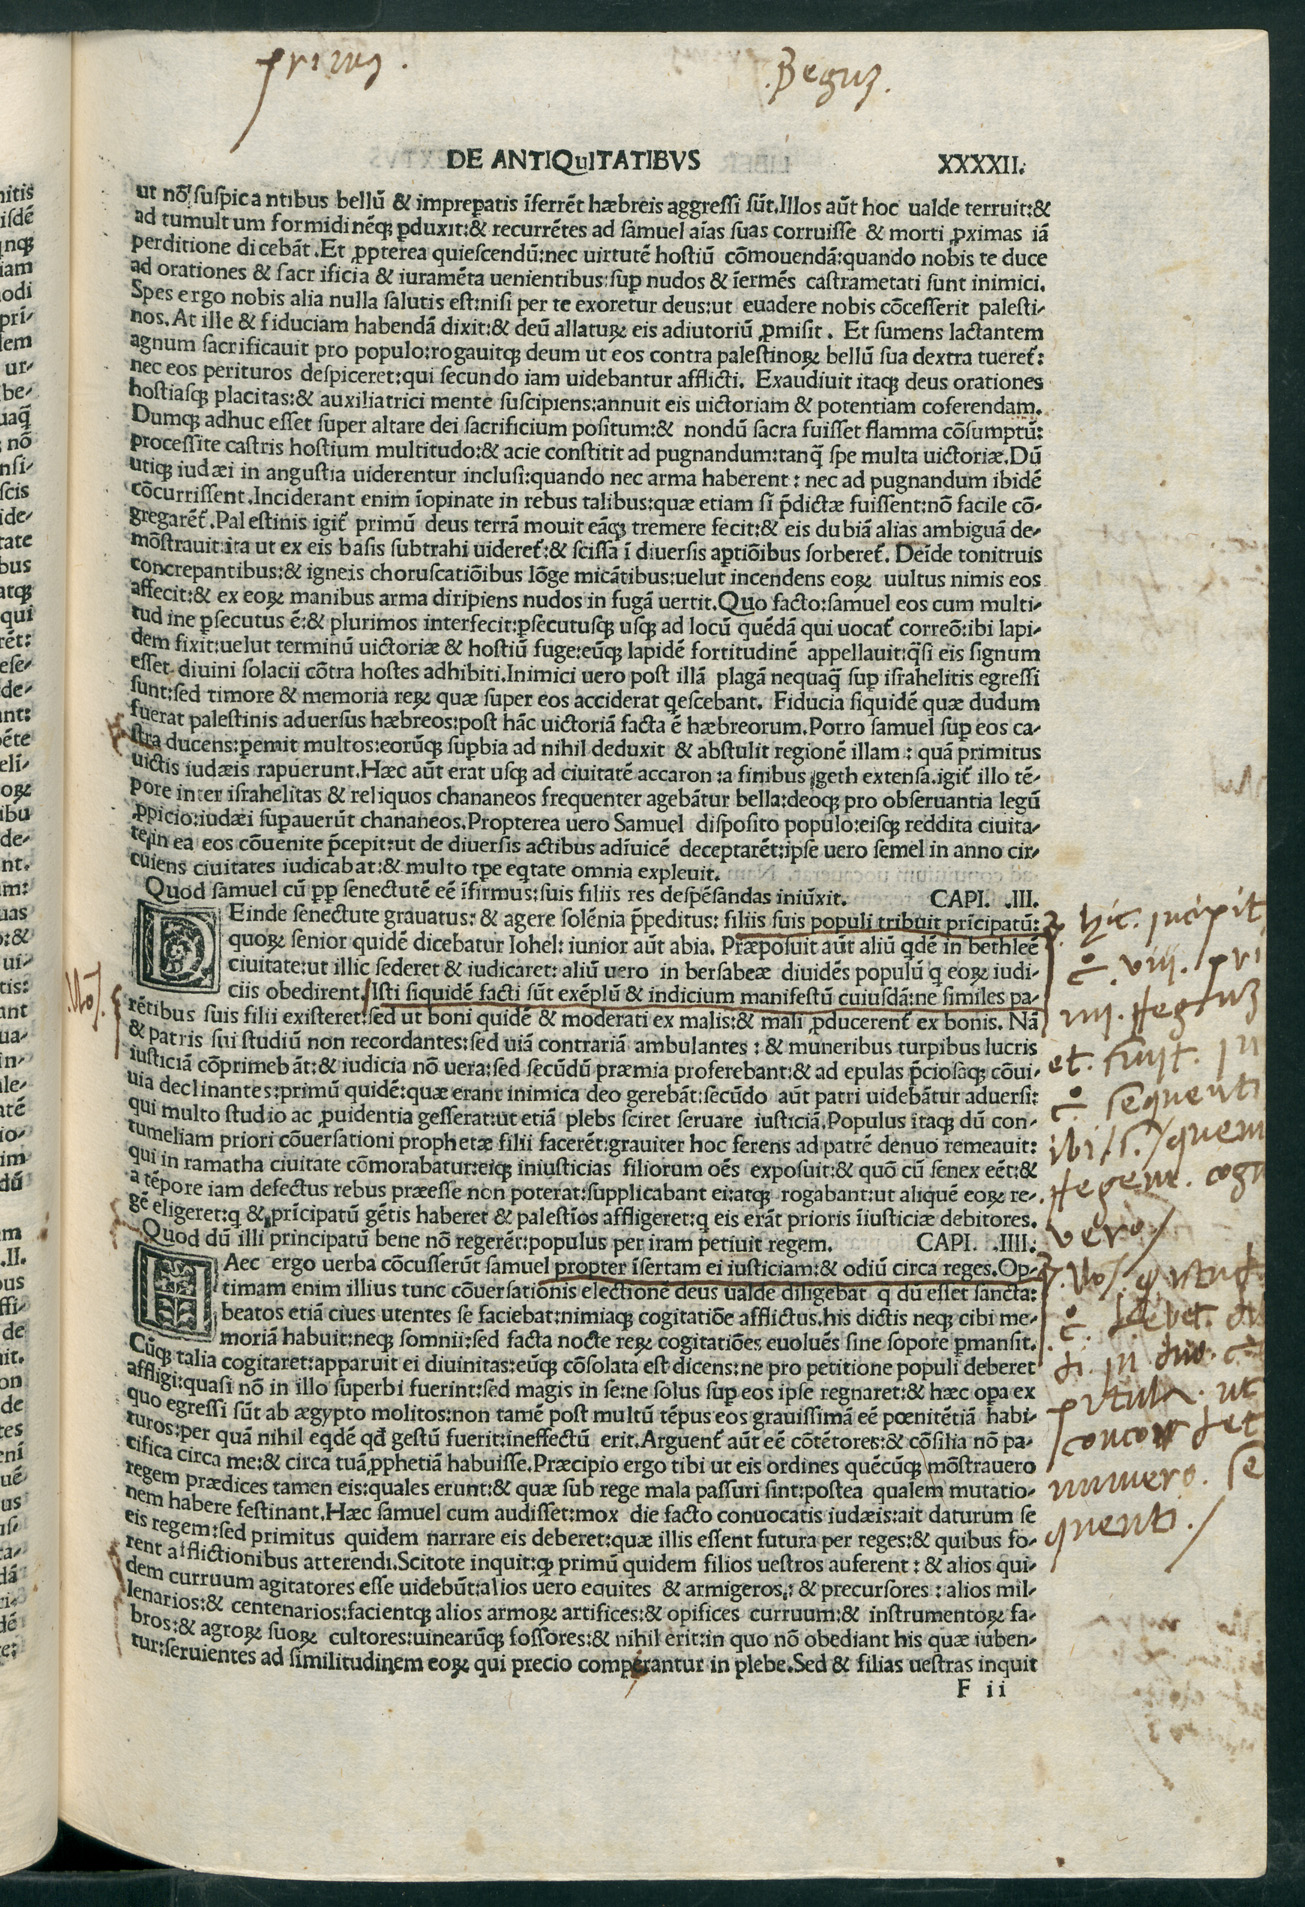 primus.
.Regum.
DE ANTIQuITATIBVS
XXXXII.
ut nõ suspicantibus bellũ & impreꝑatis ĩferrẽt hæbreis aggressi sũt.Illos aũt hoc ualde terruit:&
ad tumultum formidinẽq; ꝑduxit:& recurrẽtes ad sãmuel aĩas suas corruisse & morti ꝓximas iã
perditione dicebãt.Et ꝓpterea quiescendũ:nec uirtutẽ hostiũ cõmouendã:quando nobis te duce
ad orationes & sacrificia & iuramẽta uenientibus:suꝑ nudos & ĩermẽs castrametati sunt inimici.
Spes ergo nobis alia nulla salutis est:nisi per te exoretur deus:ut euadere nobis cõcesserit palesti-
nos.At ille & fiduciam habendã dixit:& deũ allaturꝝ eis adiutoriũ ꝓmisit. Et sumens lactantem
agnum sacrificauit pro populo:rogauitq; deum ut eos contra palestinoꝝ bellũ sua dextra tueret̃:
nec eos perituros despiceret:qui secundo iam uidebantur afflicti. Exaudiuit itaq; deus orationes
hostiasq; placitas:& auxiliatrici mente suscipiens:annuit eis uictoriam & potentiam coferendam.
Dumq; adhuc esset super altare dei sacrificium positum:& nondũ sacra fuisset flamma cõsumptũ:
processite castris hostium multitudo:& acie constitit ad pugnandum:tanq̃ spe multa uictoriæ.Dũ
utiq; iudæi in angustia uiderentur inclusi:quando nec arma haberent: nec ad pugnandum ibidẽ
cõcurrissent.Inciderant enim ĩopinate in rebus talibus:quæ etiam si p̃dictæ fuissent:nõ facile cõ-
gregarẽt̃.Palestinis igit̃ primũ deus terrã mouit eãq; tremere fecit:& eis dubiã alias ambiguã de-
mõstrauit:ita ut ex eis basis subtrahi uideret̃:& scissa ĩ diuersis aꝑtiõibus sorberet̃. Deĩde tonitruis
concrepantibus:& igneis choruscatiõibus lõge micãtibus:uelut incendens eoꝝ uultus nimis eos
affecit:& ex eoꝝ manibus arma diripiens nudos in fugã uertit.Quo facto:samuel eos cum multi-
tudine ꝑsecutus ẽ:& plurimos interfecit:ꝑsecutusq; usq; ad locũ quẽdã qui uocat̃ correõ:ibi lapi-
dem fixit:uelut terminũ uictoriæ & hostiũ fuge:eũq; lapidẽ fortitudinẽ appellauit:q̃si eis signum
esset diuini solacii cõtra hostes adhibiti.Inimici uero post illã plagã nequaq̃ suꝑ isrãhelitis egressi
sunt:sed timore & memoria reꝝ quæ super eos acciderat q̃escebant. Fiducia siquidẽ quæ dudum
fuerat palestinis aduersus hæbreos:post hãc uictoriã facta ẽ hæbreorum.Porro samuel suꝑ eos ca-
stra ducens:ꝑemit multos:eorũq; suꝑbia ad nihil deduxit & abstulit regionẽ illam: quã primitus
uictis iudæis rapuerunt.Hæc aũt erat usq; ad ciuitatẽ accaron:a finibus geth extensa.igit̃ illo tẽ-
pore inter israhelitas & reliquos chananeos frequenter agebãtur bella:deoq; pro obseruantia legũ
ꝓpicio:iudæi suꝑauerũt chananeos.Propterea uero Samuel disposito populo:eisq; reddita ciuita-
te:in ea eos cõuenite p̃cepit:ut de diuersis actibus adĩuicẽ deceptarẽt:ipse uero semel in anno cir-
cuiens ciuitates iudicabat:& multo tp̃e eq̃tate omnia expleuit.
Quod samuel cũ pp̱ senectutẽ eẽ ĩfirmus:suis filiis res despẽsandas iniũxit. CAPI. .III.
DEinde senectute grauatus: & agere solẽnia p̃peditus: filiis suis populi tribuit prĩcipatũ:
quoꝝ senior quidẽ dicebatur Iohél: iunior aũt abia. Præposuit aũt aliũ q̃dẽ in bethleẽ
ciuitate:ut illic sederet & iudicaret: aliũ uero in bersabeæ diuidẽs populũ q̃ eoꝝ iudi-
ciis obedirent.Isti siquidẽ facti sũt exẽplũ & indicium manifestũ cuiusdã:ne similes pa-
rẽtibus suis filii existeret:sed ut boni quidẽ & moderati ex malis:& mali ꝓducerent̃ ex bonis. Nã
& patris sui studiũ non recordantes:sed uiã contrariã ambulantes: & muneribus turpibus lucris
iusticiã cõprimebãt:& iudicia nõ uera:sed secũdũ præmia proferebant:& ad epulas p̃ciosãq; cõui-
uia declinantes:primũ quidẽ:quæ erant inimica deo gerebãt:secũdo aũt patri uidebãtur aduersi:
qui multo studio ac ꝓuidentia gesserat:ut etiã plebs sciret seruare iusticiã.Populus itaq; dũ con-
tumeliam priori cõuersationi prophetæ filii facerẽt:grauiter hoc ferens ad patrẽ denuo remeauit:
qui in ramatha ciuitate cõmorabatur:eiq; iniusticias filiorum oẽs exposuit:& quõ cũ senex eẽt:&
a tẽpore iam defectus rebus præesse non poterat:supplicabant ei:atq; rogabant:ut aliquẽ eoꝝ re-
gẽ eligeret:q̃ & prĩcipatũ gẽtis haberet & palestĩos affligeret:q̃ eis erãt prioris ĩiusticiæ debitores.
Quod dũ illi principatũ bene nõ regerẽt:populus per iram petiuit regem. CAPI. .IIII.
HAec ergo uerba cõcusserũt samuel propter ĩsertam ei iusticiam:& odiũ circa reges.Op-
timam enim illius tunc cõuersationis electionẽ deus ualde diligebat q̃ dũ esset sancta:
beatos etiã ciues utentes se faciebat:nimiaq; cogitatiõe afflictus.his dictis neq; cibi me-
moriã habuit:neq; somnii:sed facta nocte reꝝ cogitatiões euoluẽs sine sopore ꝑmansit.
Cũq; talia cogitaret:apparuit ei diuinitas:eũq; cõsolata est dicens:ne pro petitione populi deberet
affligi:quasi nõ in illo superbi fuerint:sed magis in se:ne solus suꝑ eos ipse regnaret:& hæc oꝑa ex
quo egressi sũt ab ægypto molitos:non tamẽ post multũ tẽpus eos grauissimã eẽ pœnitẽtiã habi-
turos:per quã nihil eq̃dẽ qđ gestũ fuerit:ineffectũ erit.Arguent̃ aũt eẽ cõtẽtores:& cõsilia nõ pa-
cifica circa me:& circa tuã ꝓphetiã habuisse.Præcipio ergo tibi ut eis ordines quẽcũq; mõstrauero
regem prædices tamen eis:quales erunt:& quæ sub rege mala passuri sint:postea qualem mutatio-
nem habere festinant.Hæc samuel cum audisset:mox die facto conuocatis iudæis:ait daturum se
eis regem:sed primitus quidem narrare eis deberet:quæ illis essent futura per reges:& quibus fo-
rent afflictionibus atterendi.Scitote inquit:ꝙ primũ quidem filios uestros auferent: & alios qui-
dem curruum agitatores esse uidebũt:alios uero equites & armigeros: & precursores: alios mil-
lenarios:& centenarios:facientq; alios armoꝝ artifices:& opifices curruum:& instrumentoꝝ fa-
bros:& agroꝝ suoꝝ cultores:uinearũq; fossores:& nihil erit:in quo nõ obediant his quæ iuben-
tur:seruientes ad similitudinem eoꝝ qui precio comperantur in plebe.Sed & filias uestras inquit
F ii
.No.
hic. incipit
c̊. viii. pri
mi. Regum
et. sunt. in
c̊ sequenti
ibi/
Regem.
vero/
.No/
c̊. debet.
di. in duo. c̊
pitula. ut
concor det
numero. se
quenti./